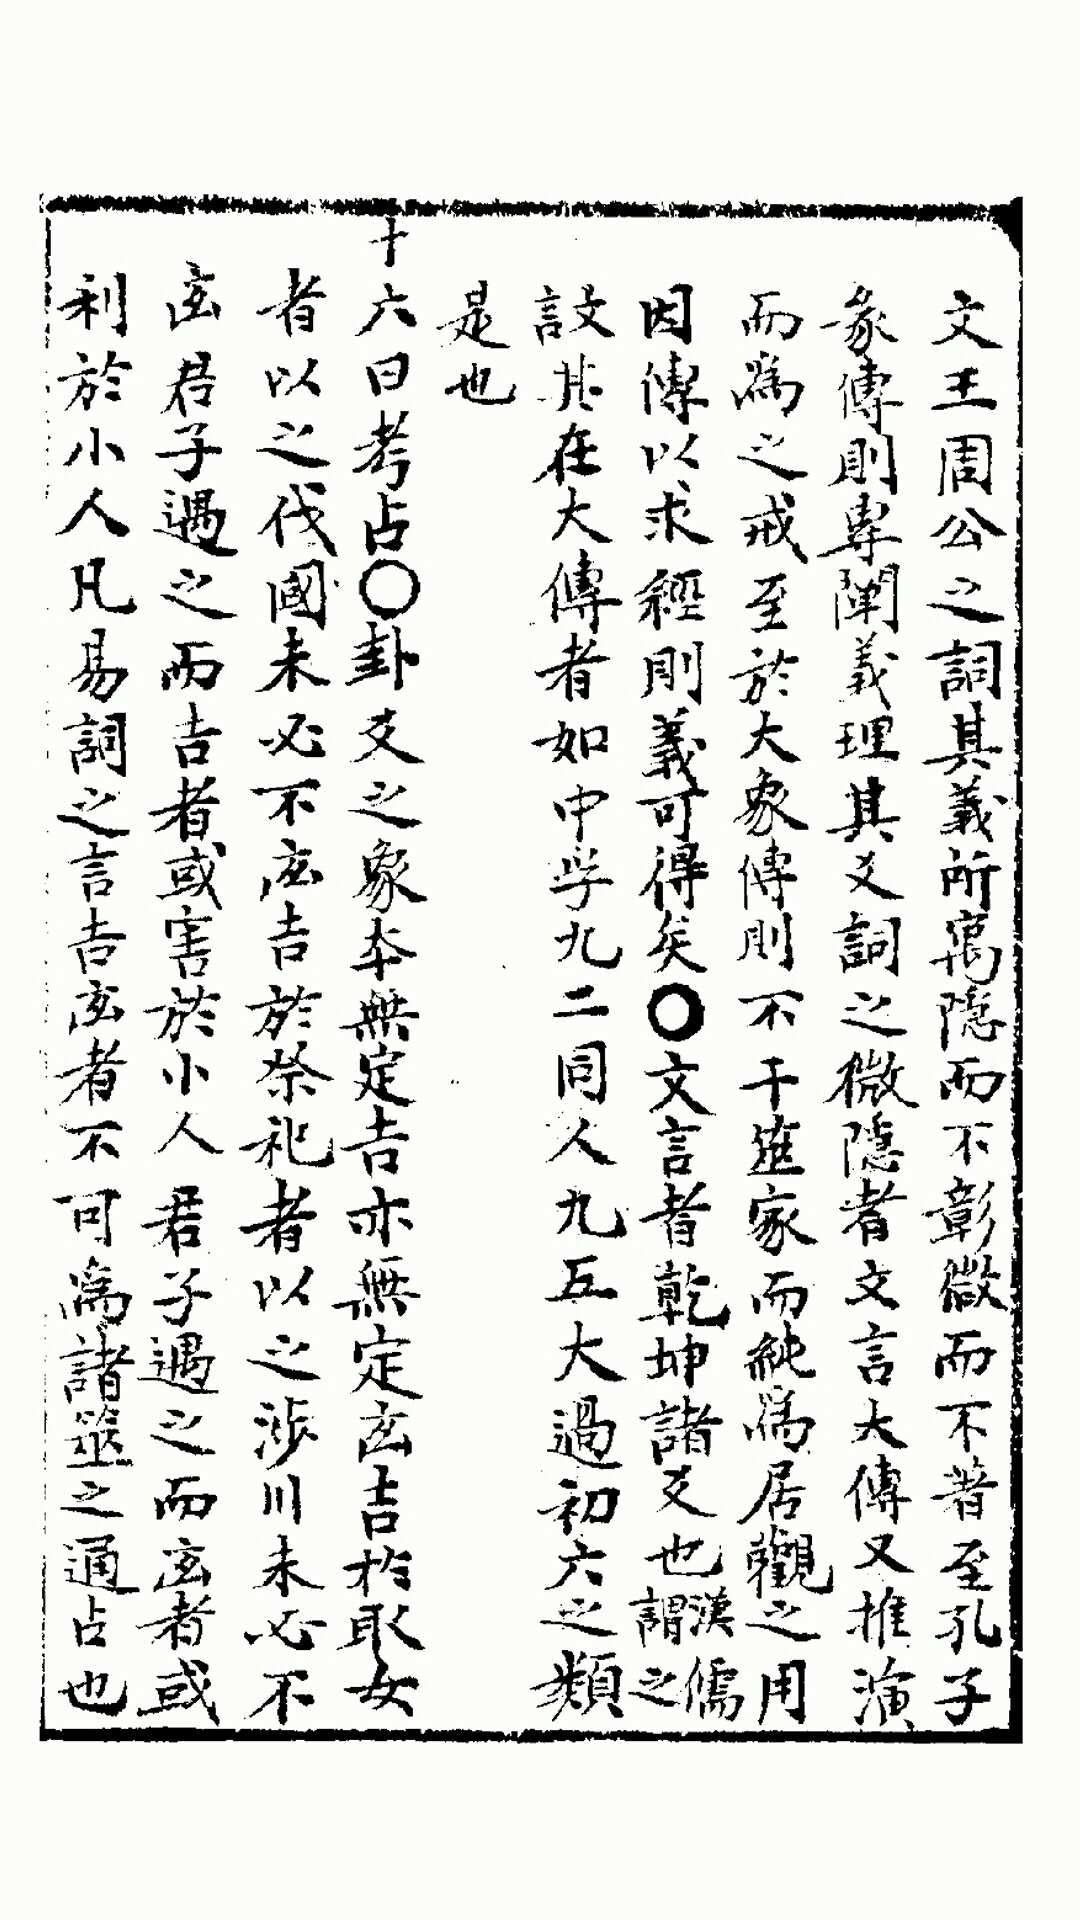 文王周公之詞其義所寓隱而不彰微而不著至孔子
彖傳則專闡義理其爻詞之微隱者文言大傳又推演
而爲之戒至於大象傳則不干筮家而純爲居觀之用
因傳以求經則義可得矣〇文言者乾坤諸爻也漢儒謂之
設其在大傳者如中孚九二同人九五大過初六之類
是也
十六曰考占〇卦爻之象夲無定吉亦無定㐫吉於取女
者以之伐國未必不㐫吉於祭祀者以之涉川未必不
㐫君子遇之而吉者或害於小人君子遇之而㐫者或
利於小人凡易詞之言吉㐫者不可爲諸筮之通占也